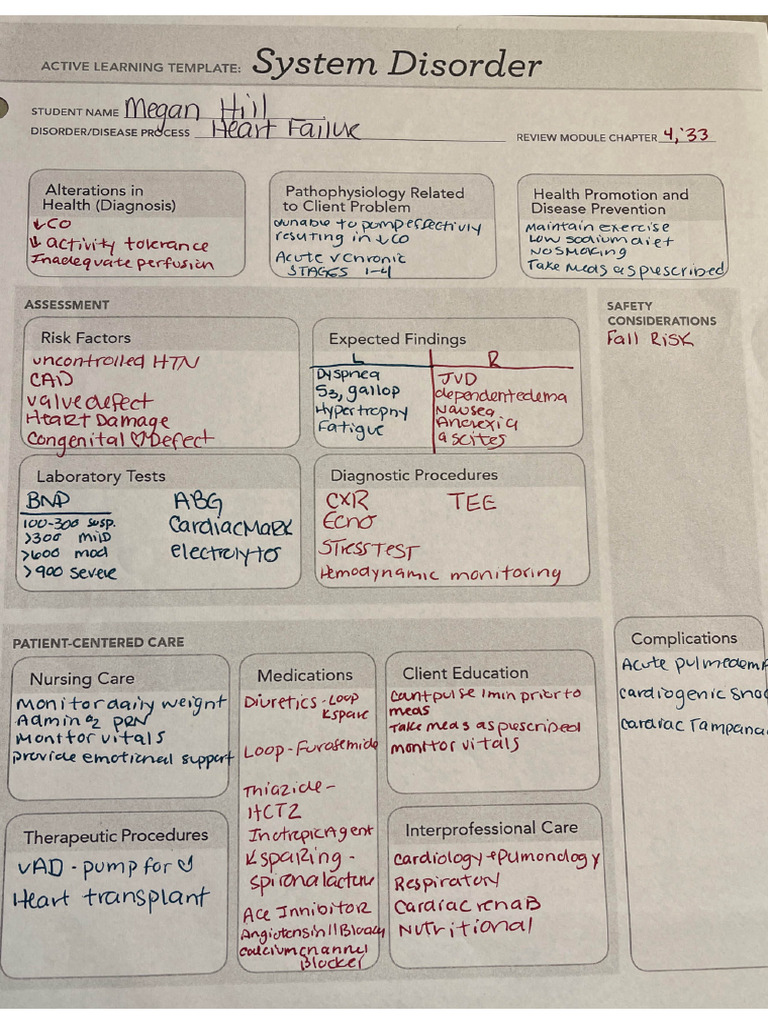 ACTIVE LEARNING TEMPLATE: System Disorder
STUDENT NAME Megan Hill
DISORDER/DISEASE PROCESS Heart Failure
REVIEW MODULE CHAPTER 4, 33
Alterations in
Health (Diagnosis)
↓CO
↓ activity tolerance
Inadequate perfusion
Pathophysiology Related
to Client Problem
unable to pump effectivly
resuting in ↓CO
Acute v Chronic
STAGES 1-4
Health Promotion and
Disease Prevention
Maintain exercise
Low sodium diet
NO SMOKING
Take Meds as prescribed
ASSESSMENT
SAFETY
CONSIDERATIONS
Fall RISK
Risk Factors
uncontrolled HTN
CAD
valve defect
Heart Damage
Congenital ♡ Defect
Expected Findings
L R
Dyspnea
S3, gallop
Hypertrophy
Fatigue
JVD
dependent edema
Nausea
Anorexia
ascites
Laboratory Tests
BNP
100-300 susp.
>300 mild
>600 mod
>900 severe
ABG
Cardiac Mark
electrolytes
Diagnostic Procedures
CXR TEE
Echo
STRESS TEST
Hemodynamic monitoring
PATIENT-CENTERED CARE
Complications
Acute pulm edem
cardiogenic Shoc
cardiac Tampona
Nursing Care
Monitor daily weight
Admin O2 PRN
Monitor vitals
provide emotional support
Medications
Diuretics - Loop
K spare
Loop - Furosemide
Thiazide -
HCTZ
Inotropic Agent
K spaRing -
spironalactone
Ace Inhibitor
Angiotensin II Block
calcium channel
Blocker
Client Education
Count pulse 1 min prior to
meds
Take meds as prescribed
monitor vitals
Therapeutic Procedures
VAD - pump for ♡
Heart transplant
Interprofessional Care
Cardiology + Pumonology
Respiratory
Cardiac rehaB
Nutritional